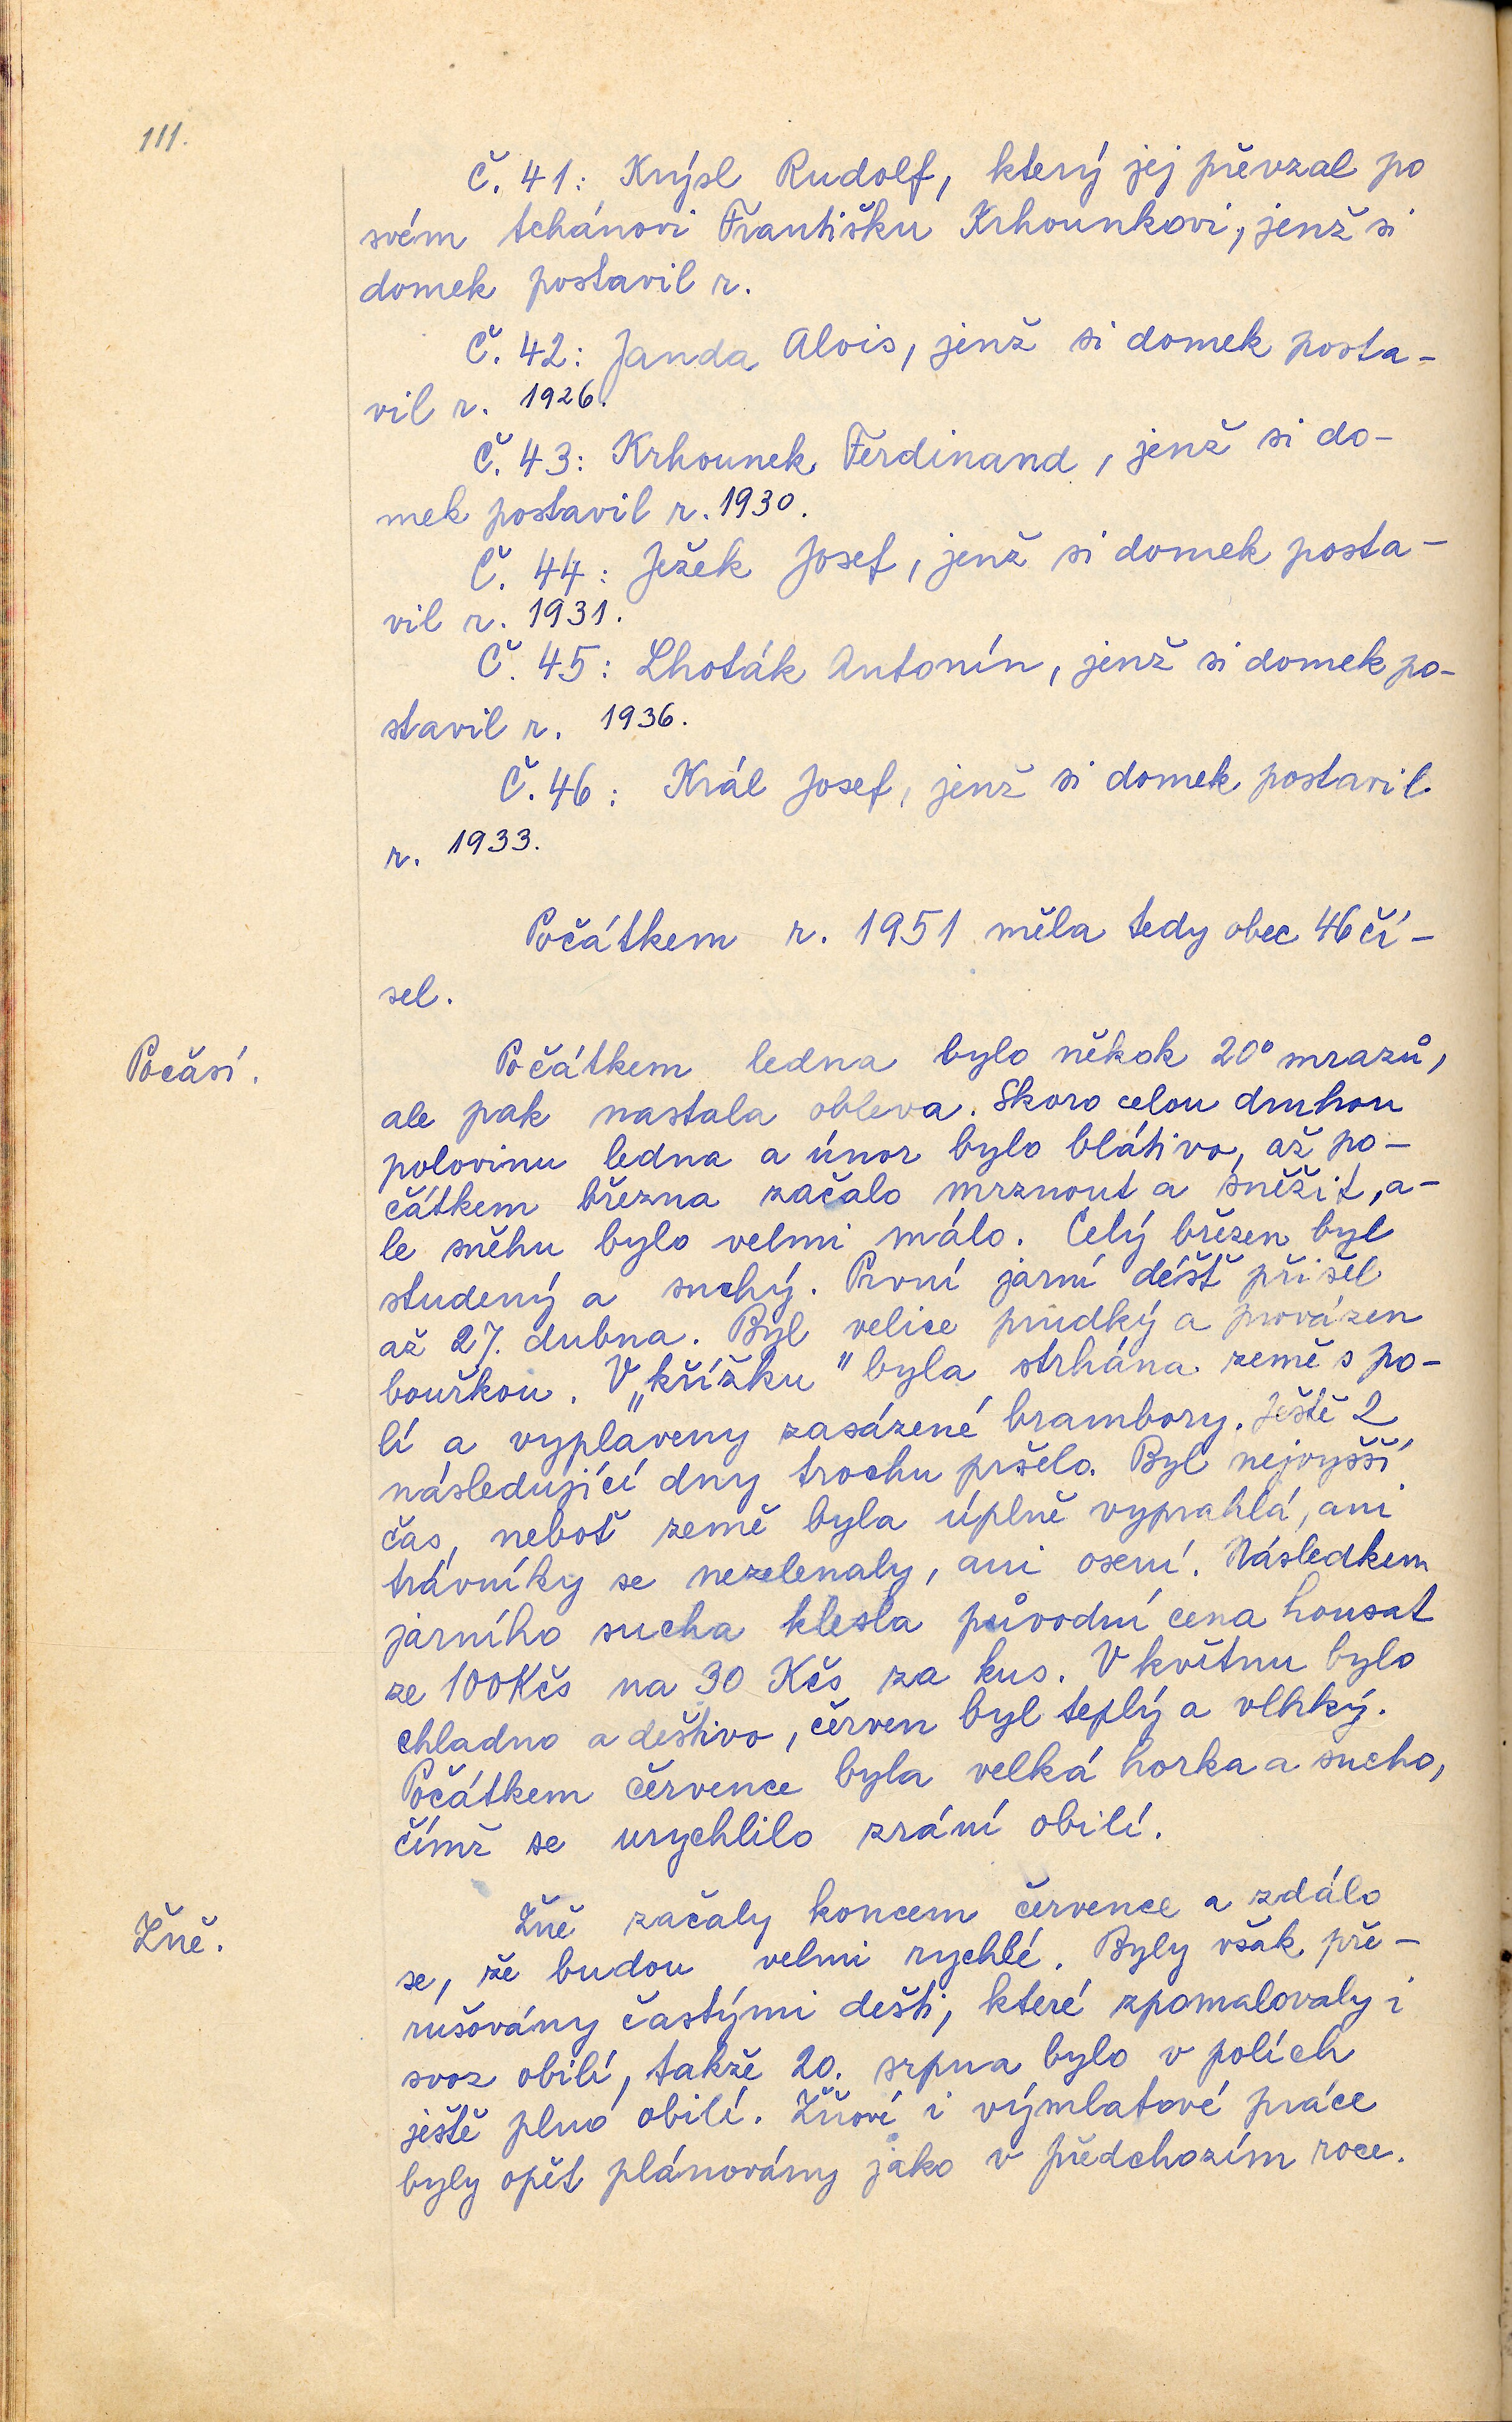 111.
Č. 41: Krýsl Rudolf, který jej převzal po
svém tchánovi Františku Krhounkovi, jenž si
domek postavil r.
Č. 42: Janda Alois, jenž si domek posta-
vil r. 1926.
Č. 43: Krhounek Ferdinand, jenž si do-
mek postavil r. 1930.
Č. 44: Ježek Josef, jenž si domek posta-
vil r. 1931.
Č. 45: Lhoták Antonín, jenž si domek po-
stavil r. 1936.
Č. 46: Král Josef, jenž si domek postavil
r. 1933.
Počátkem r. 1951 měla tedy obec 46 čí-
sel.
Počasí.
Počátkem ledna bylo někok 20° mrazů,
ale pak nastala obleva. Skoro celou druhou
polovinu ledna a únor bylo blátivo, až po-
čátkem března začalo mrznout a sněžit, a-
le sněhu bylo velmi málo. Celý březen byl
studený a suchý. První jarní déšť přišel
až 27. dubna. Byl velice prudký a provázen
bouřkou. V „křížku" byla strhána země s po-
lí a vyplaveny zasázené brambory. Ještě 2
následující dny trochu pršelo. Byl nejvyšší
čas, neboť země byla úplně vyprahlá, ani
trávníky se nezelenaly, ani osení. Následkem
jarního sucha klesla původní cena housat
ze 100 Kčs na 30 Kčs za kus. V květnu bylo
chladno a deštivo, červen byl teplý a vlhký.
Počátkem července byla velká horka a sucho,
čímž se urychlilo zrání obilí.
Žně.
Žně začaly koncem července a zdálo
se, že budou velmi rychlé. Byly však pře-
rušovány častými dešti, které zpomalovaly i
svoz obilí, takže 20. srpna bylo v polích
ještě plno obilí. Žňové i výmlatové práce
byly opět plánovány jako v předchozím roce.